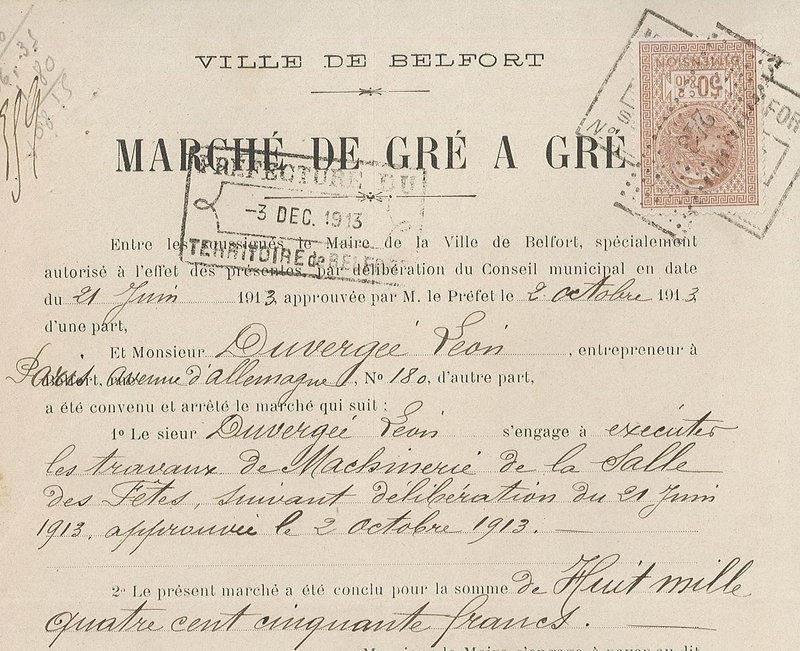 VILLE DE BELFORT
MARCHÉ DE GRÉ A GRÉ
PRÉFECTURE DU
-3 DEC. 1913
TERRITOIRE de BELFORT
DIMENSION
50
Entre les soussignés le Maire de la Ville de Belfort, spécialement
autorisé à l'effet des présentes par délibération du Conseil municipal en date
du 21 Juin 1913, approuvée par M. le Préfet le 2 octobre 1913
d'une part,
Et Monsieur Duvergée Léon, entrepreneur à
Paris, avenue d'allemagne, No 180, d'autre part,
a été convenu et arrêté le marché qui suit :
1º Le sieur Duvergée Léon s'engage à exécuter
les travaux de Machinerie de la Salle
des Fêtes, suivant délibération du 21 Juin
1913, approuvée le 2 Octobre 1913.
2º Le présent marché a été conclu pour la somme de Huit mille
quatre cent cinquante francs.